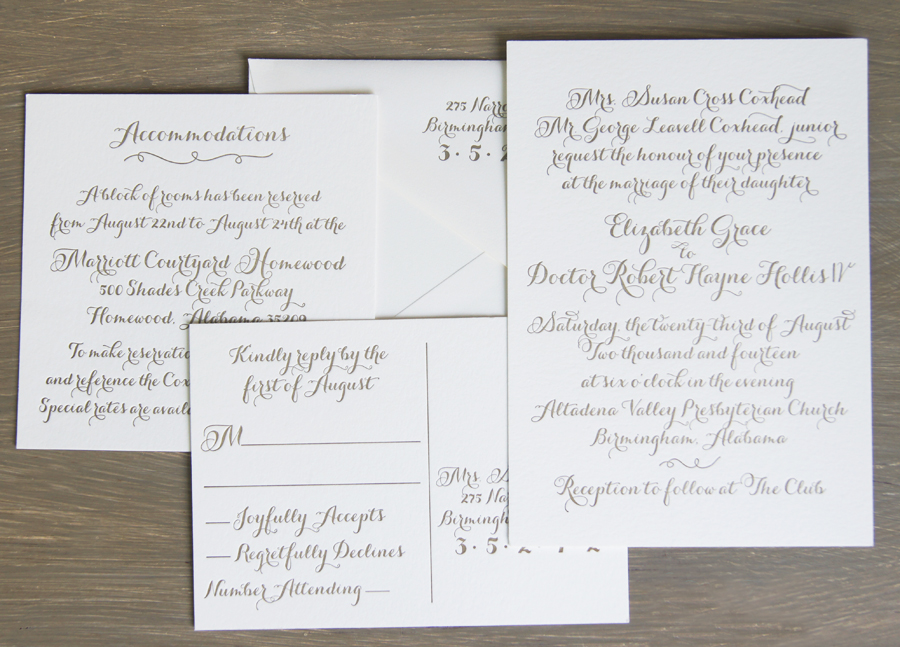 Accommodations
A block of rooms has been reserved
from August 22nd to August 24th at the
Marriott Courtyard Homewood
500 Shades Creek Parkway
Homewood, Alabama 35209
To make
and reference the
Special rates are
275
Birmingham
3 · 5 ·
Kindly reply by the
first of August
M
Joyfully Accepts
Regretfully Declines
Number Attending
Mrs.
275
Birmingham
3 · 5 · 2
Mrs. Susan Cross Coxhead
Mr. George Leavell Coxhead, junior
request the honour of your presence
at the marriage of their daughter
Elizabeth Grace
to
Doctor Robert Hayne Hollis IV
Saturday, the twenty-third of August
Two thousand and fourteen
at six o'clock in the evening
Altadena Valley Presbyterian Church
Birmingham, Alabama
Reception to follow at The Club